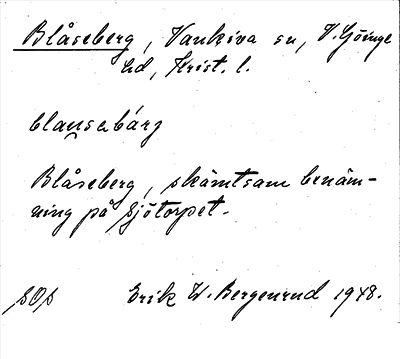 Blåseberg, Vankiva sn, V. Göinge
hd, Krist. l.
blausabárj
Blåseberg, skämtsam benäm-
ning på Sjötorpet.
SOS Erik W. Bergenrud 1948.